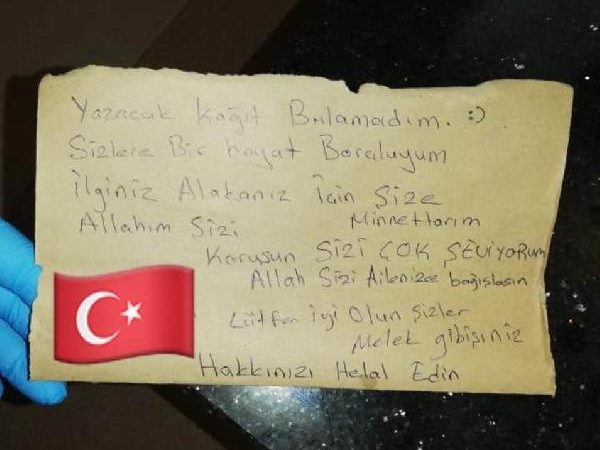 Yazacak Kağıt Bulamadım. :)
Sizlere Bir hayat Borçluyum
İlginiz Alakanız İçin Size
Minnettarım
Allahım Sizi
Korusun SİZİ ÇOK SEVİYORUM
Allah Sizi Ailenize bağışlasın
Lütfen iyi Olun Sizler
Melek gibisiniz
Hakkınızı Helal Edin